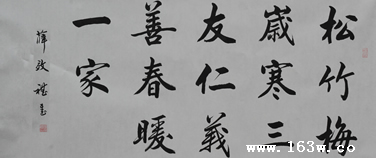 松竹梅
歲寒三
友仁義
善春暖
一家
www.163w.co